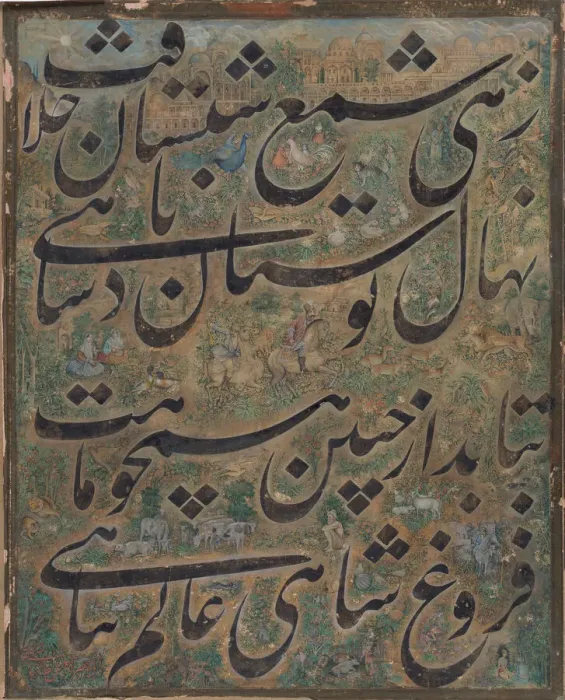 زهی شمع شبستان خلافت
نهال بوستان بادشاهی
بتابد از جبین همچو ماهت
فروغ شاهی عالم پناهی